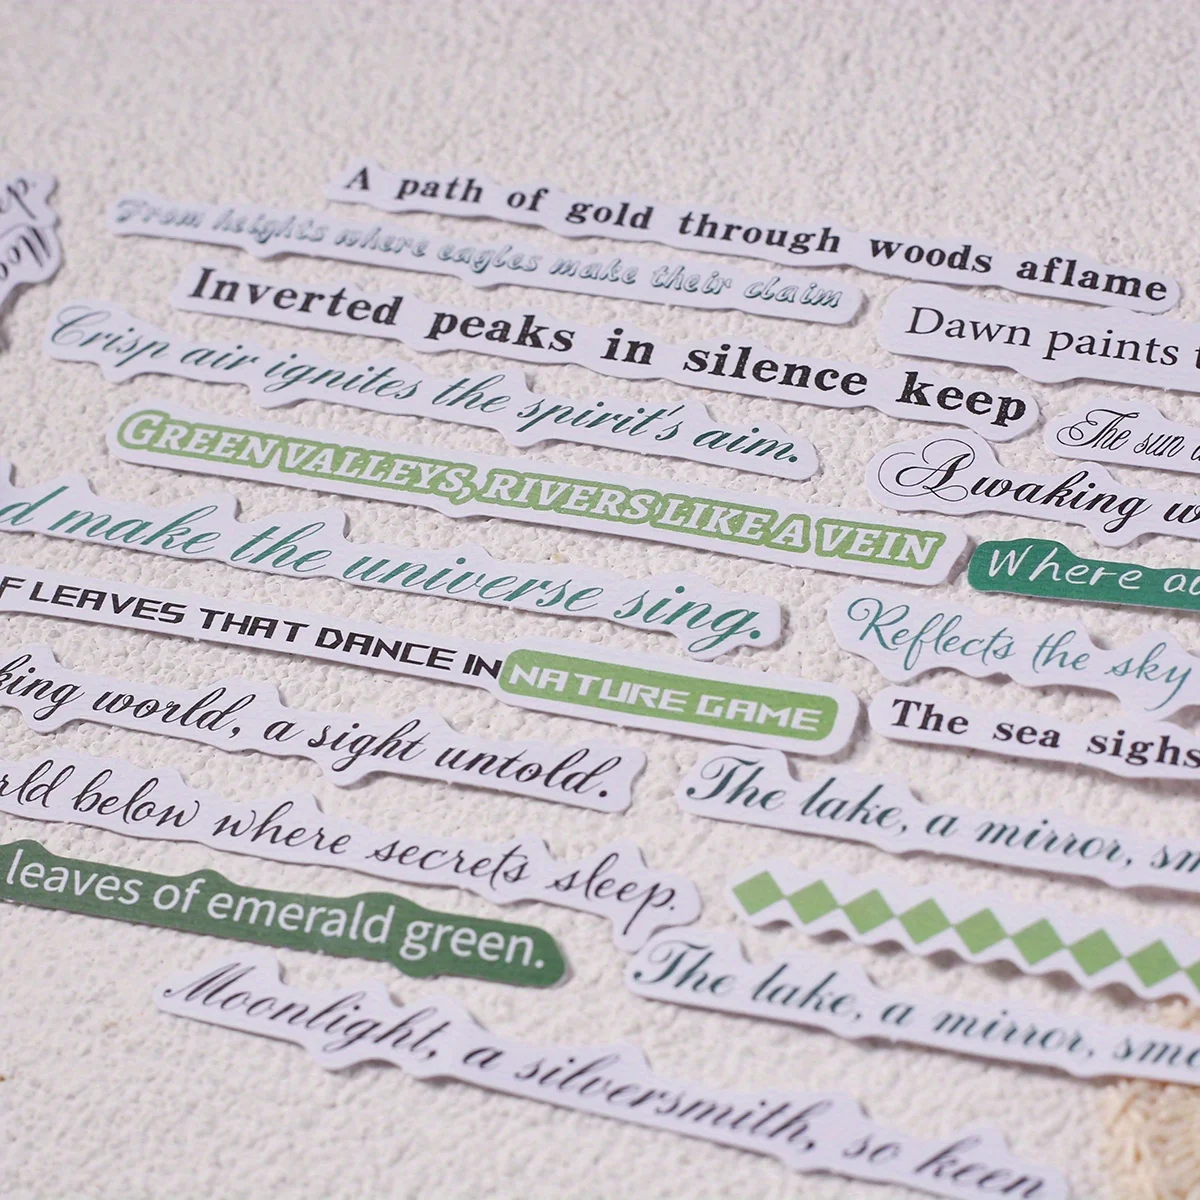 A path of gold through woods aflame
From heights where eagles make their claim
Inverted peaks in silence keep
Dawn paints
Crisp air ignites the spirit's aim.
The sun
Awaking
GREEN VALLEYS, RIVERS LIKE A VEIN
Where
make the universe sing.
Reflects the sky
LEAVES THAT DANCE IN NATURE GAME
The sea sighs
world, a sight untold.
The lake, a mirror,
below where secrets sleep.
leaves of emerald green.
The lake, a mirror,
Moonlight, a silversmith, so keen